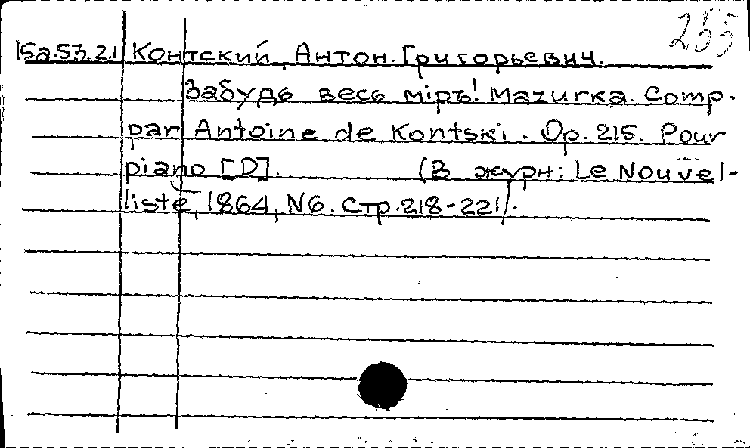 255
15a.53.21 Контский, Антон Григорьевич.
Забудь весь мiръ! Mazurka. Comp.
par Antoine de Kontski. Op. 215. Pour
piano [D]. (В журн: Le Nouvel-
liste, 1864, N6. Стр. 218-221).